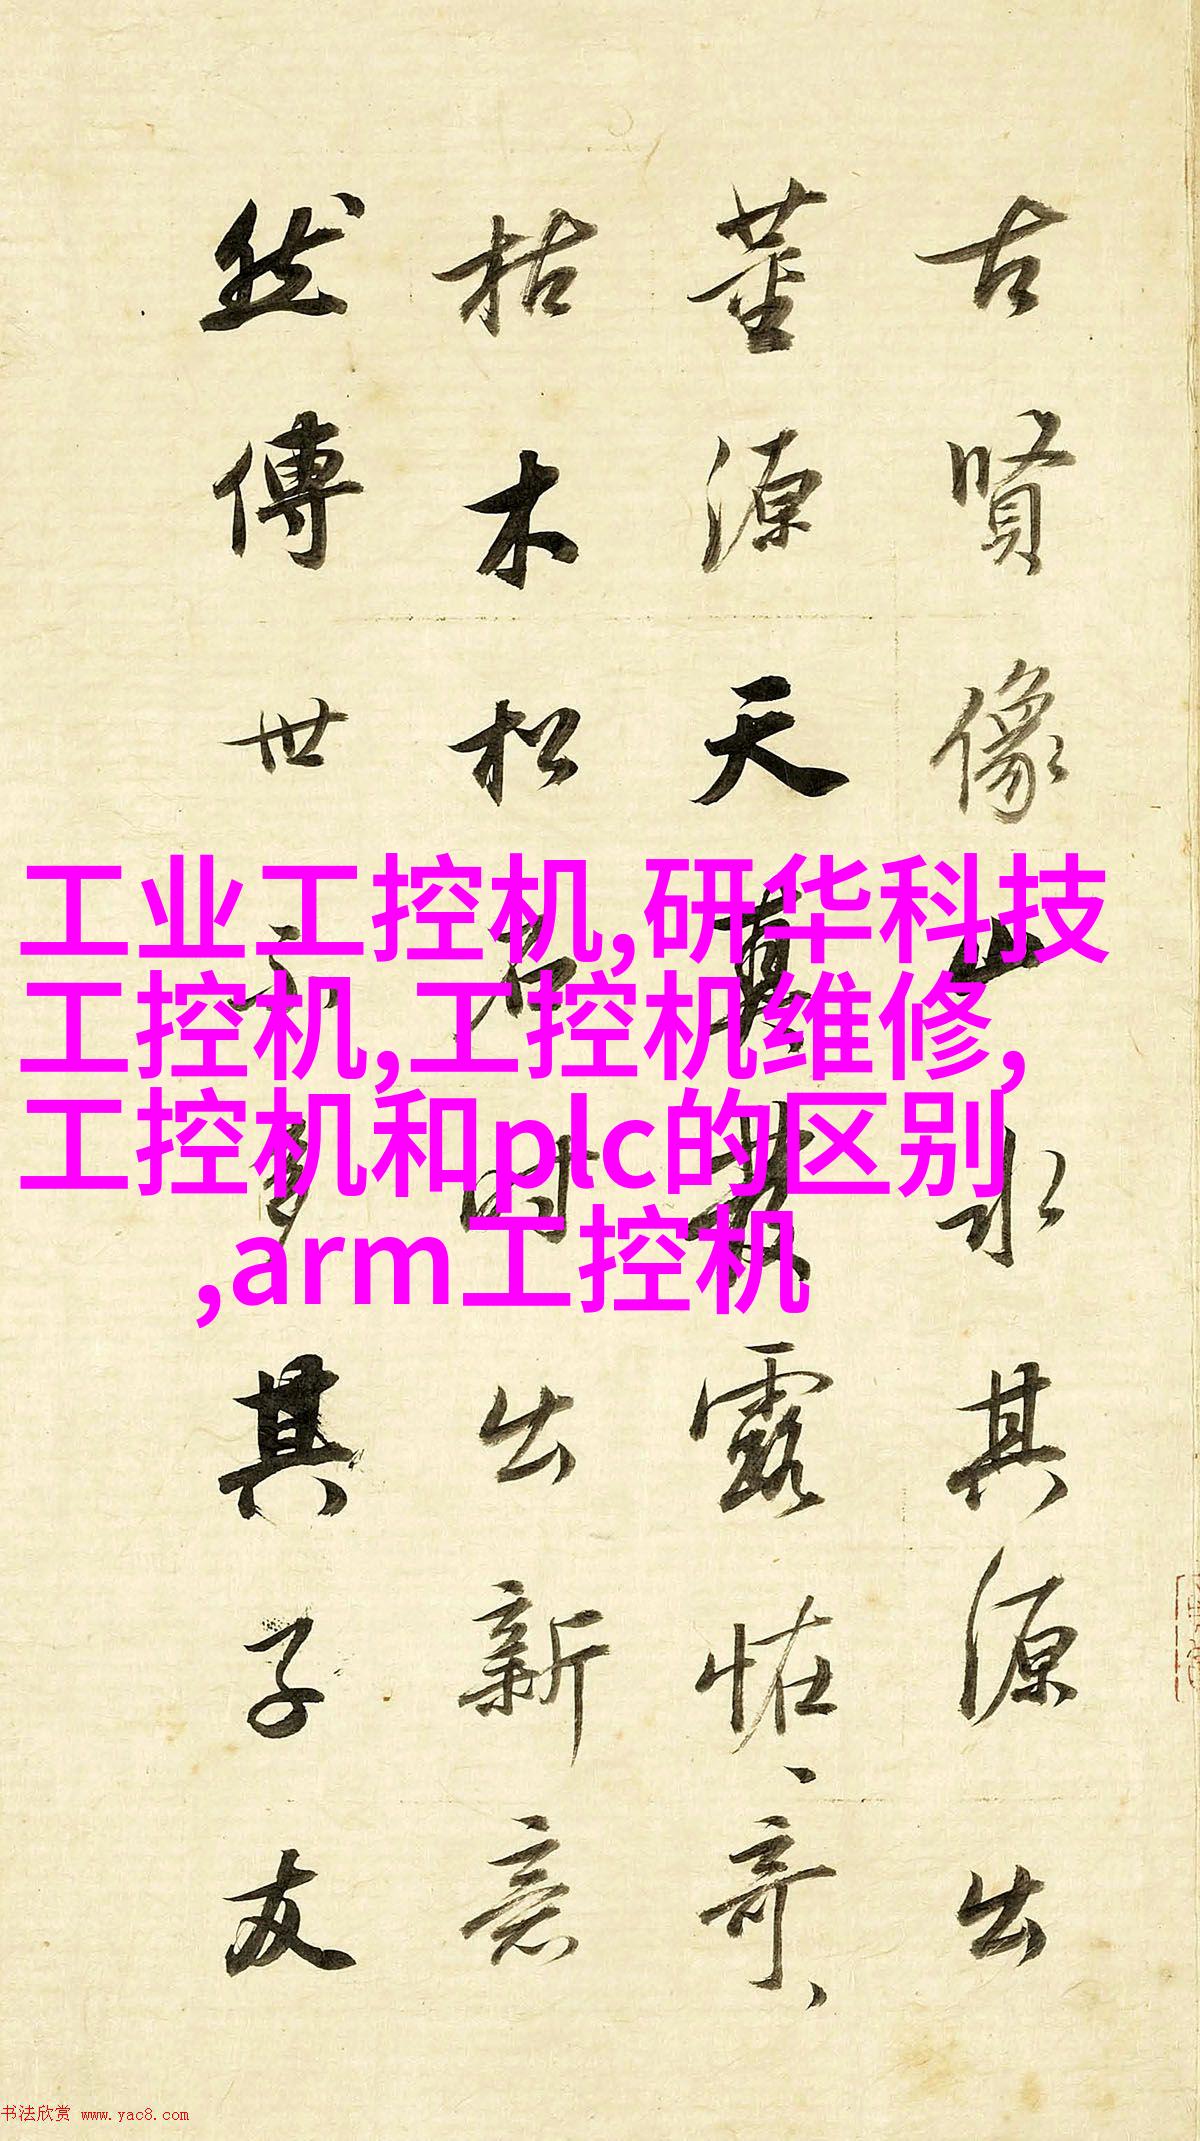 古賢像山水其源出
董源天真發露恠、奇、
枯木松石時出新意
然傳世不多其子友
工业工控机,研华科技
工控机,工控机维修,
工控机和plc的区别
,arm工控机
书法欣赏 www.yac8.com